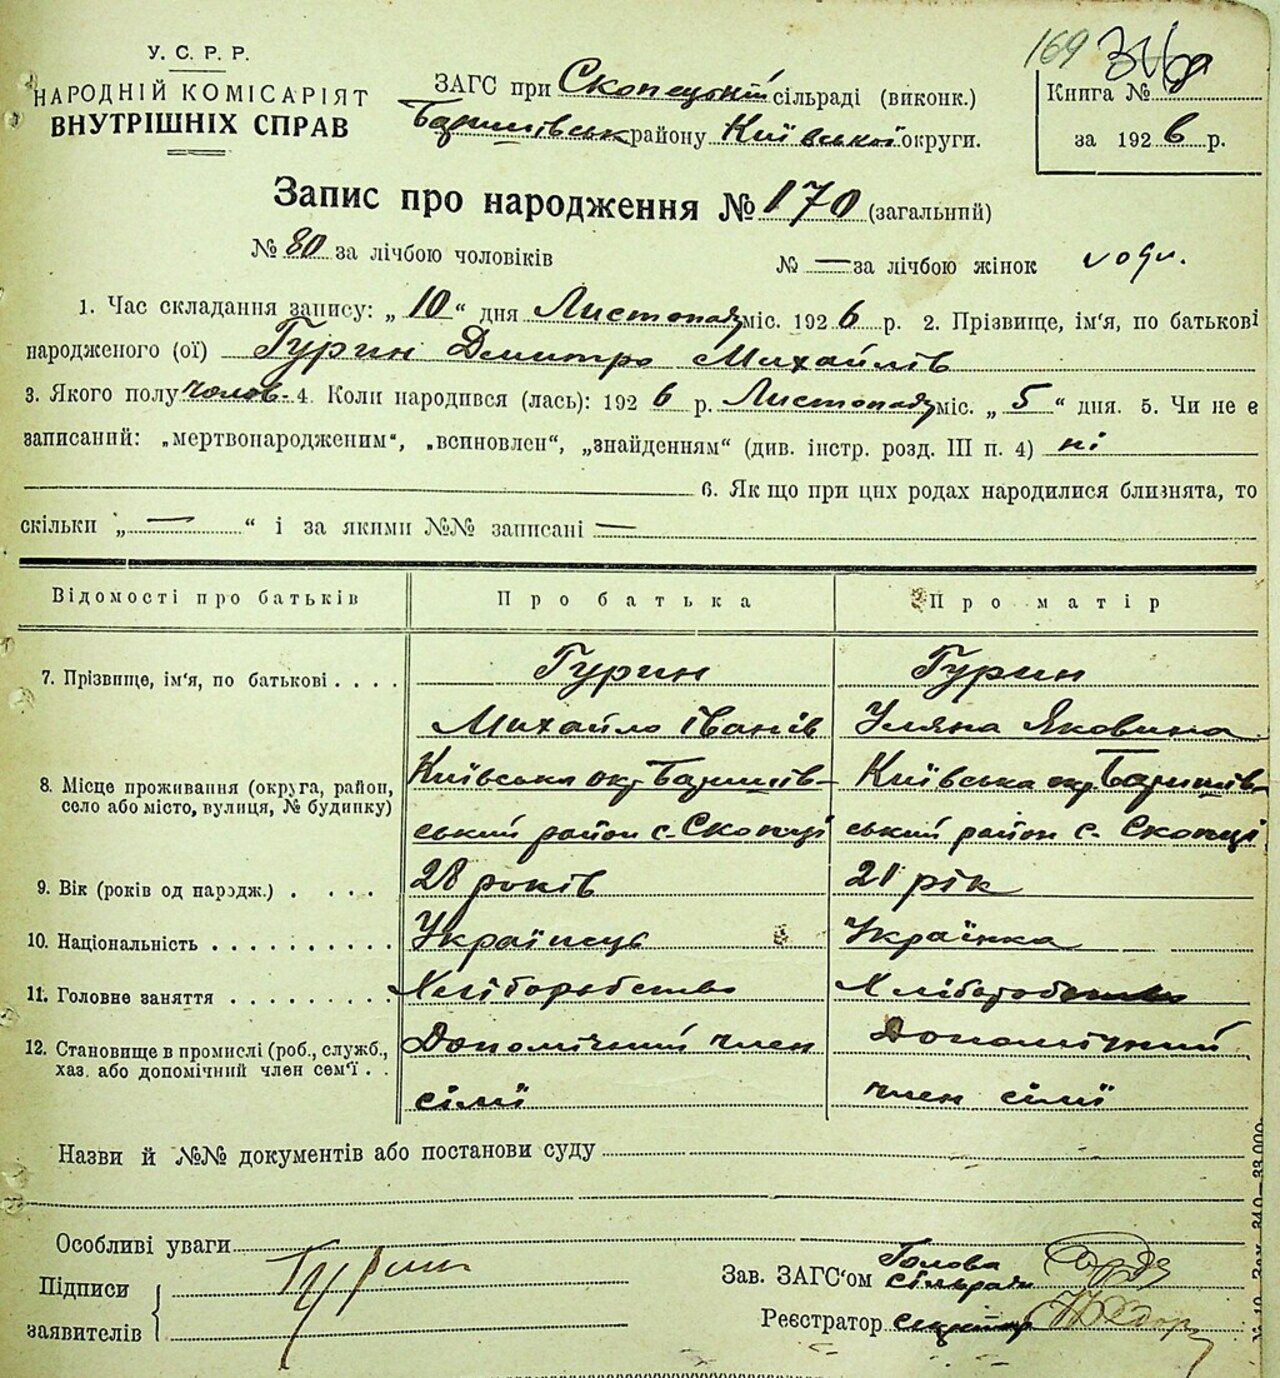 169
У. С. Р. Р.
НАРОДНІЙ КОМІСАРІЯТ
ВНУТРІШНІХ СПРАВ
ЗАГС при Скопецькій сільраді (виконк.)
Баришівськ району Київської округи.
Книга №
за 1926 р.
Запис про народження № 170 (загальний)
№ 80 за лічбою чоловіків № — за лічбою жінок
1. Час складання запису: „10“ дня Листопаду міс. 1926 р. 2. Прізвище, ім'я, по батькові
народженого (ої) Гурин Дмитро Михайлів
3. Якого полу чолов. 4. Коли народився (лась): 1926 р. Листопаду міс. „5“ дня. 5. Чи не є
записаний: „мертвонародженим“, „всиновлен“, „знайденням“ (див. інстр. розд. III п. 4) ні
6. Як що при цих родах народилися близнята, то
скільки „—“ і за якими №№ записані —
Відомості про батьків Про батька Про матір
7. Прізвище, ім'я, по батькові . . . . Гурин Гурин
Михайло Іванів Уляна Яковина
8. Місце проживання (округа, район, село або місто, вулиця, № будинку) Київська окр. Баришів- Київська окр. Баришів-
ський район с. Скопці ський район с. Скопці
9. Вік (років од народж.) . . . . 28 років 21 рік
10. Національність . . . . . . . . . . Українець Українка
11. Головне заняття . . . . . . . . . Хліборобство Хліборобство
12. Становище в промислі (роб., служб., хаз. або допомічний член сем'ї . . Допомічний член Допомічний
сімї член сімї
Назви й №№ документів або постанови суду
Особливі уваги
Підписи
заявителів
Гурин
Зав. ЗАГС'ом Голова
сільради
Реєстратор секретар